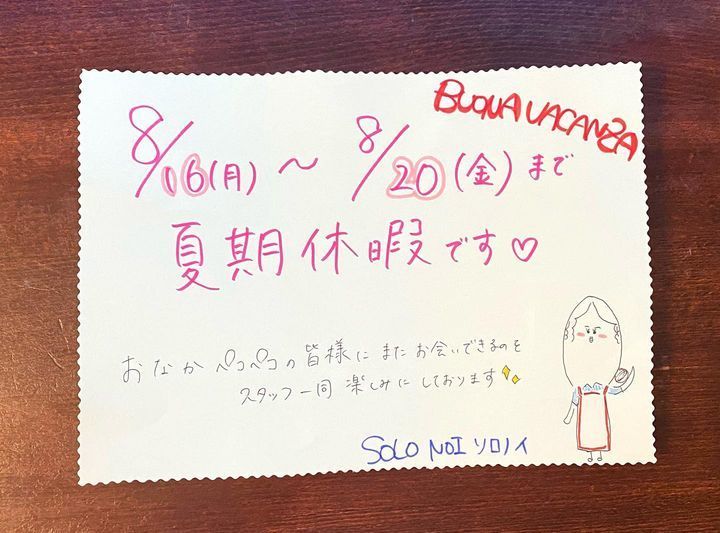 BUONA VACANZA
8/16(月)〜8/20(金)まで
夏期休暇です♡
おなかペコペコの皆様にまたお会いできるのを
スタッフ一同楽しみにしております
SOLO NOI ソロノイ